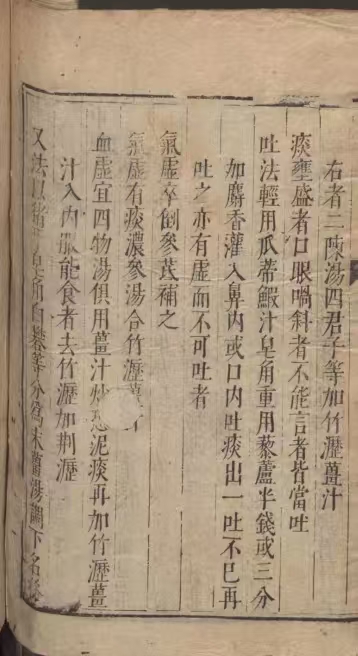 右者二陳湯四君子等加竹瀝薑汁
痰壅盛者口眼喎斜者不能言者皆當吐
吐法輕用瓜蒂鰕汁皂角重用藜蘆半錢或三分
加麝香灌入鼻內或口內吐痰出一吐不已再
吐之亦有虛而不可吐者
氣虛卒倒參芪補之
氣虛有痰濃參湯合竹瀝薑汁
血虛宜四物湯俱用薑汁炒恐泥痰再加竹瀝薑
汁入內服能食者去竹瀝加荆瀝
又法以猪牙皂角白礬等分爲末薑湯調下名